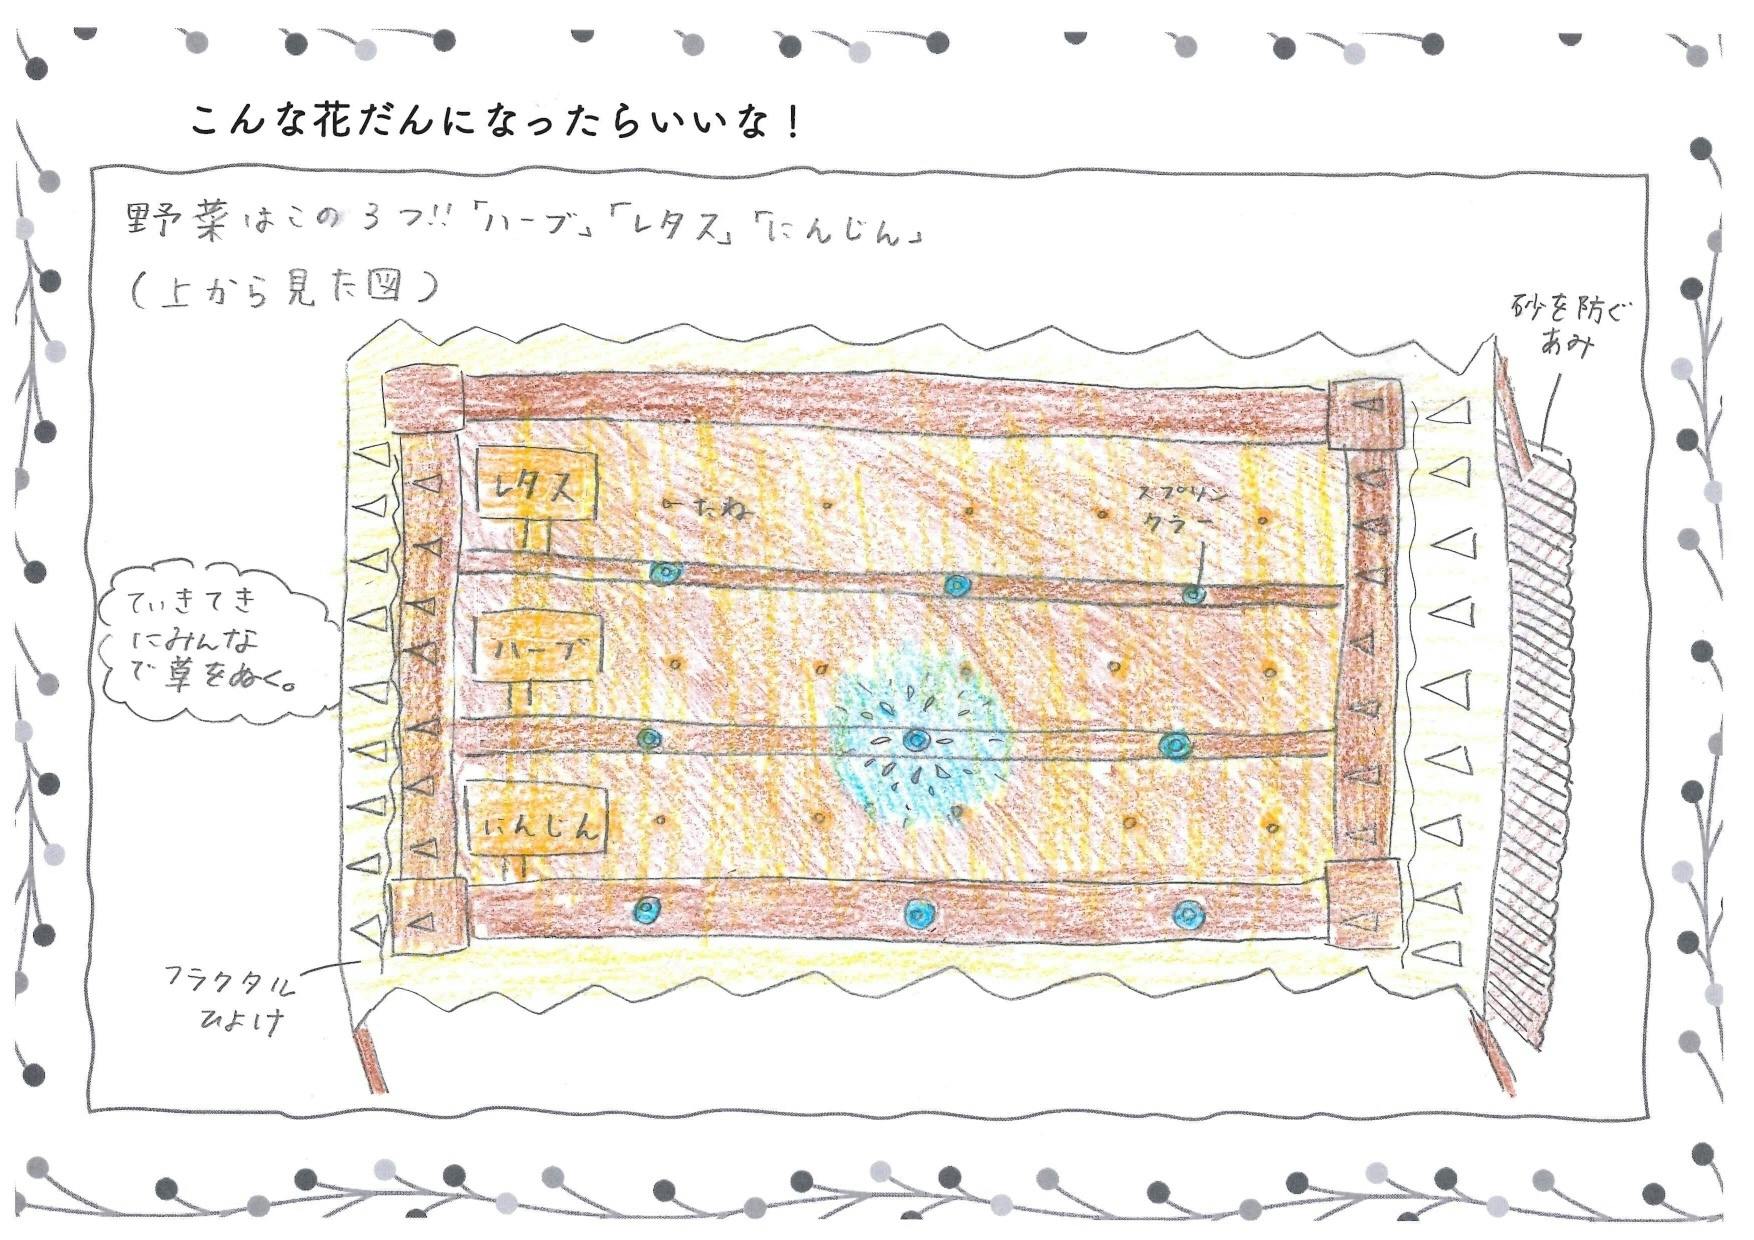 こんな花だんになったらいいな！
野菜はこの3つ!!「ハーブ」「レタス」「にんじん」
(上から見た図)
砂を防ぐ
あみ
レタス
←たね
スプリン
クラー
ていきてき
にみんな
で草をぬく。
ハーブ
にんじん
フラクタル
ひよけ